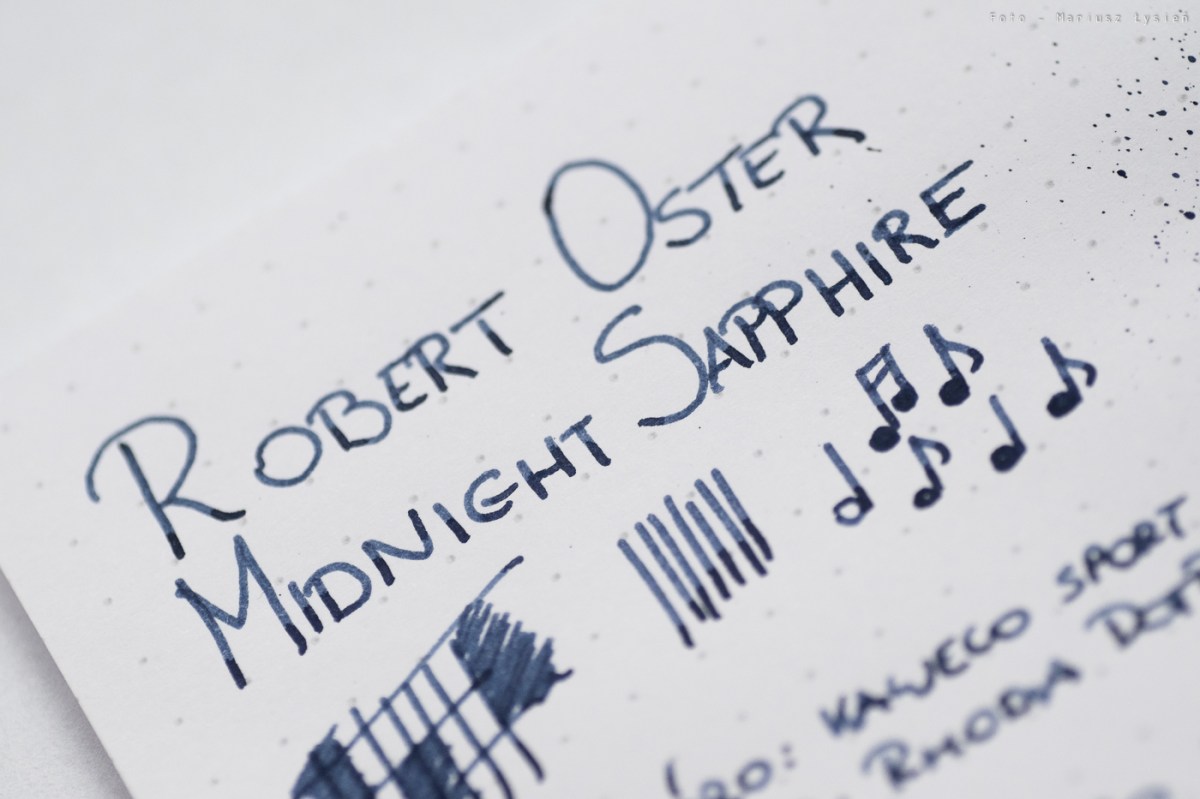 Foto - Mariusz Łysień
ROBERT OSTER
MIDNIGHT SAPPHIRE
KAWECO SPORT
RHODIA